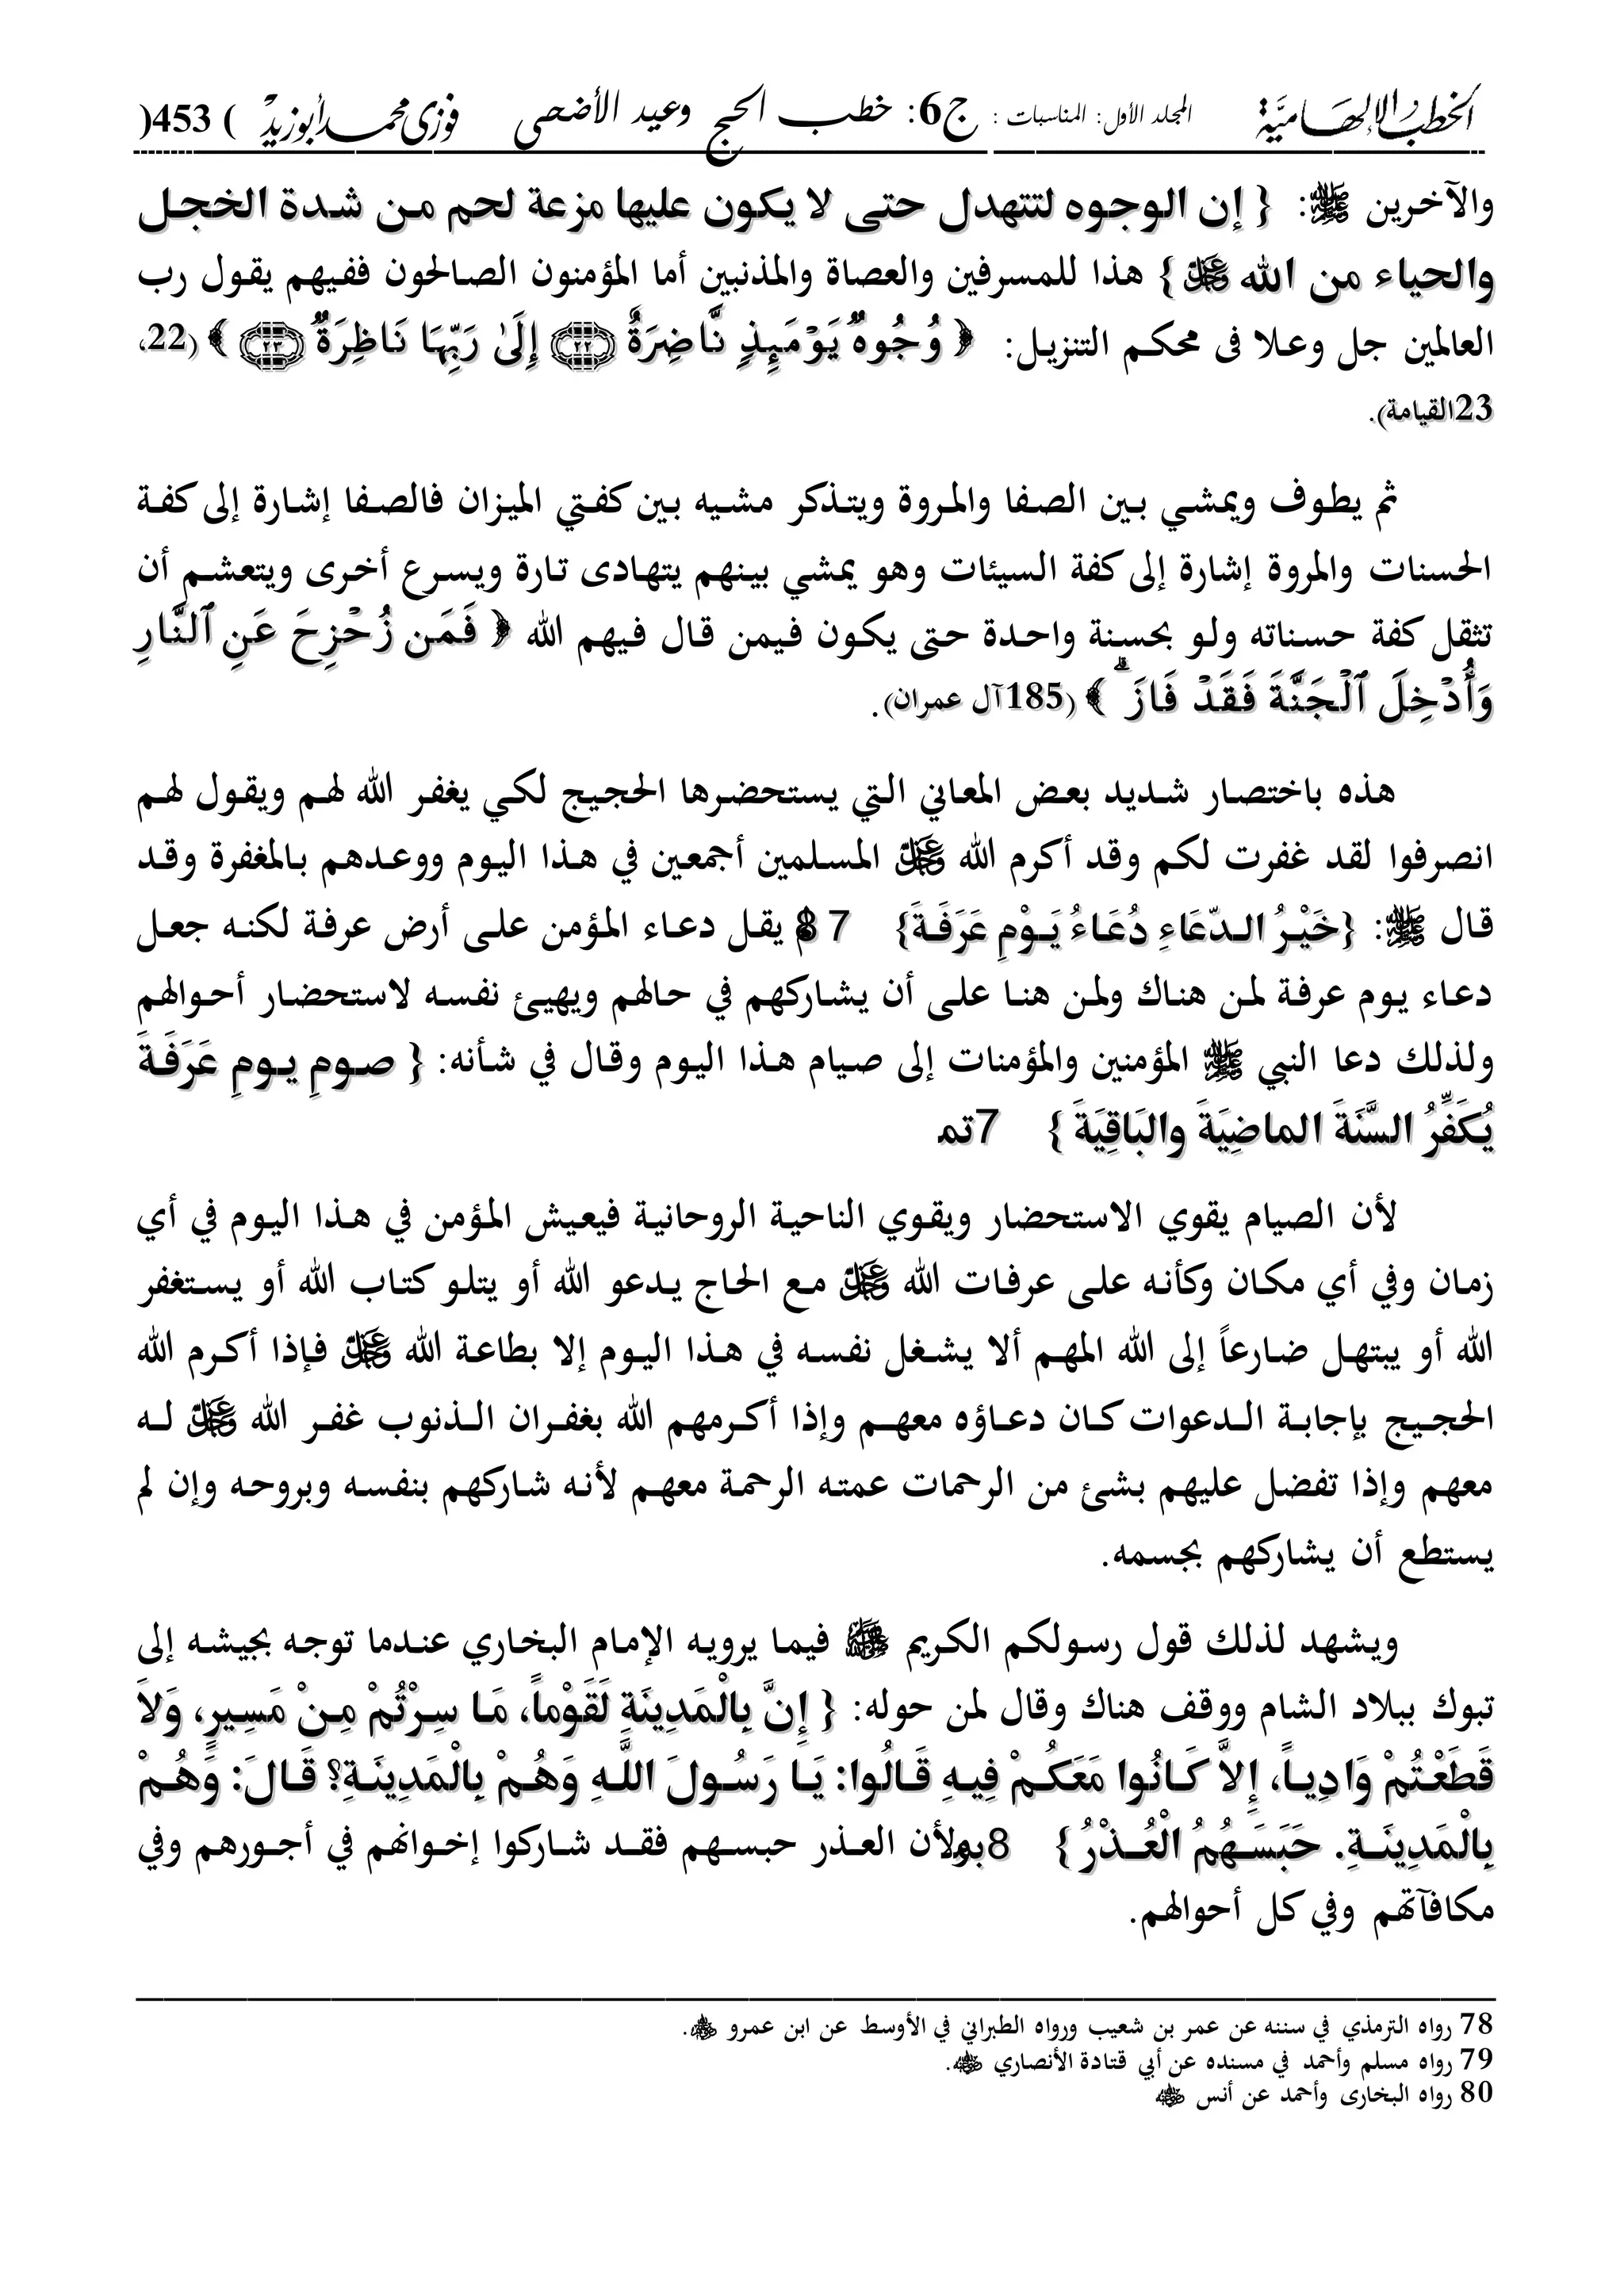 الخطب الإلهامية المجلد الأول: المناسبات : ج6: خطب الحج وعيد الأضحى فوزى محمد أبوزيد ( 453)
والآخرين ﷺ: { إن الوجوه لتتهدل حتى لا يكون عليها مزعة لحم من شدة الخجل
والحياء من الله عز وجل } هذا للمسرفين والعصاة والمذنبين أما المؤمنون الصالحون ففيهم يقول رب
العالمين جل وعلا فى محكم التنزيل: ﴿ وُجُوهٌ يَوْمَئِذٍ نَّاضِرَةٌ ﴿٢٢﴾ إِلَىٰ رَبِّهَا نَاظِرَةٌ ﴿٢٣﴾ ﴾ (22،
23القيامة).
ثم يطوف ويمشي بين الصفا والمروة ويتذكر مشيه بين كفتي الميزان فالصفا إشارة إلى كفة
الحسنات والمروة إشارة إلى كفة السيئات وهو يمشي بينهم يتهادى تارة ويسرع أخرى ويتعشم أن
تثقل كفة حسناته ولو بحسنة واحدة حتى يكون فيمن قال فيهم الله ﴿ فَمَن زُحْزِحَ عَنِ ٱلنَّارِ
وَأُدْخِلَ ٱلْجَنَّةَ فَقَدْ فَازَ ۗ ﴾ (185آل عمران).
هذه باختصار شديد بعض المعاني التي يستحضرها الحجيج لكي يغفر الله لهم ويقول لهم
انصرفوا لقد غفرت لكم وقد أكرم الله عز وجل المسلمين أجمعين في هذا اليوم ووعدهم بالمغفرة وقد
قال ﷺ: {خَيْرُ الدّعَاءِ دُعَاءُ يَوْمِ عَرَفَةَ} 78لم يقل دعاء المؤمن على أرض عرفة لكنه جعل
دعاء يوم عرفة لمن هناك ولمن هنا على أن يشاركهم في حالهم ويهيئ نفسه لاستحضار أحوالهم
ولذلك دعا النبي ﷺ المؤمنين والمؤمنات إلى صيام هذا اليوم وقال في شأنه: { صومِ يومِ عَرَفَةَ
يُكَفِّرُ السَّنَةَ الماضِيَةَ والبَاقِيَةَ } 7
لأن الصيام يقوي الاستحضار ويقوي الناحية الروحانية فيعيش المؤمن في هذا اليوم في أي
زمان وفي أي مكان وكأنه على عرفات الله عز وجل مع الحاج يدعو الله أو يتلو كتاب الله أو يستغفر
الله أو يبتهل ضارعاً إلى الله المهم ألا يشغل نفسه في هذا اليوم إلا بطاعة الله عز وجل فإذا أكرم الله
الحجيج بإجابة الدعوات كان دعاؤه معهم وإذا أكرمهم الله بغفران الذنوب غفر الله عز وجل له
معهم وإذا تفضل عليهم بشئ من الرحمات عمته الرحمة معهم لأنه شاركهم بنفسه وبروحه وإن لم
يستطع أن يشاركهم بجسمه.
ويشهد لذلك قول رسولكم الكريم ﷺ فيما يرويه الإمام البخاري عندما توجه بجيشه إلى
تبوك ببلاد الشام ووقف هناك وقال لمن حوله: { إِنَّ بِالْمَدِينَةِ لَقَوْماً، مَا سِرْتُمْ مِنْ مَسِيرٍ، وَلاَ
قَطَعْتُمْ وَادِياً، إِلاَّ كَانُوا مَعَكُمْ فِيهِ قَالُوا: يَا رَسُولَ اللَّهِ وَهُمْ بِالْمَدِينَةِ؟ قَالَ: وَهُمْ
بِالْمَدِينَةِ. حَبَسَهُمُ الْعُذْرُ } 8 ولأن العذر حبسهم فقد شاركوا إخوانهم في أجورهم وفي
مكافآتهم وفي كل أحوالهم.
78 رواه الترمذي في سننه عن عمر بن شعيب ورواه الطبراني في الأوسط عن ابن عمرو رضي الله عنه.
79 رواه مسلم وأحمد في مسنده عن أبي قتادة الأنصاري رضي الله عنه.
80 رواه البخارى وأحمد عن أنس رضي الله عنه